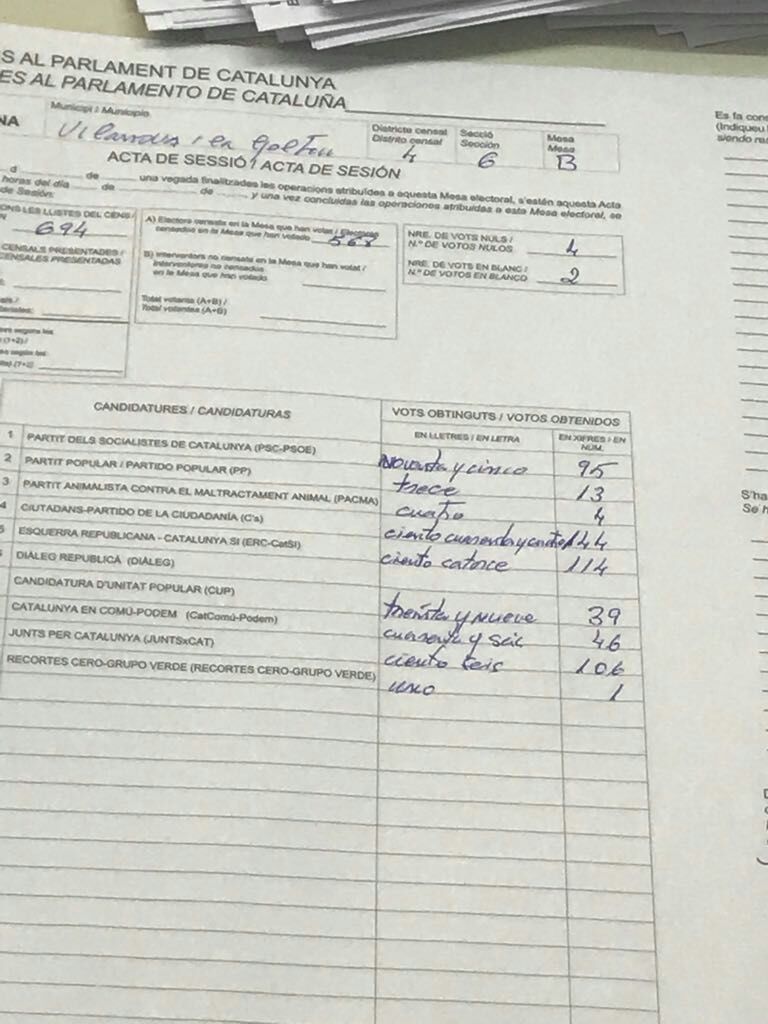 S AL PARLAMENT DE CATALUNYA
ES AL PARLAMENTO DE CATALUÑA
NA
Municipi / Municipio
Vilanova i la Geltrú
Districte censal
Distrito censal
4
Secció
Sección
6
Mesa
Mesa
B
ACTA DE SESSIÓ / ACTA DE SESIÓN
d de , una vegada finalitzades les operacions atribuïdes a aquesta Mesa electoral, s'estén aquesta Acta
horas del día de de , y una vez concluidas las operaciones atribuidas a esta Mesa electoral, se
de Sesión:
ONS LES LLISTES DEL CENS /
694
CENSALS PRESENTADES /
CENSALES PRESENTADAS
A) Electors censats en la Mesa que han votat / Electores
censados en la Mesa que han votado 568
B) Interventors no censats en la Mesa que han votat /
Interventores no censados
en la Mesa que han votado
Total votants (A+B) /
Total votantes (A+B)
NRE. DE VOTS NULS /
N.º DE VOTOS NULOS 4
NRE. DE VOTS EN BLANC /
N.º DE VOTOS EN BLANCO 2
CANDIDATURES / CANDIDATURAS
VOTS OBTINGUTS / VOTOS OBTENIDOS
EN LLETRES / EN LETRA
EN XIFRES / EN NÚM.
1 PARTIT DELS SOCIALISTES DE CATALUNYA (PSC-PSOE) Noventa y cinco 95
2 PARTIT POPULAR / PARTIDO POPULAR (PP) trece 13
3 PARTIT ANIMALISTA CONTRA EL MALTRACTAMENT ANIMAL (PACMA) cuatro 4
4 CIUTADANS-PARTIDO DE LA CIUDADANÍA (C's) ciento cuarenta y cuatro 144
5 ESQUERRA REPUBLICANA - CATALUNYA SI (ERC-CatSI) ciento catorce 114
DIÀLEG REPUBLICÀ (DIÀLEG)
CANDIDATURA D'UNITAT POPULAR (CUP) treinta y nueve 39
CATALUNYA EN COMÚ-PODEM (CatComú-Podem) cuarenta y seis 46
JUNTS PER CATALUNYA (JUNTSxCAT) ciento seis 106
RECORTES CERO-GRUPO VERDE (RECORTES CERO-GRUPO VERDE) uno 1
Es fa cons
(Indiqueu
siendo re
S'ha
Se h